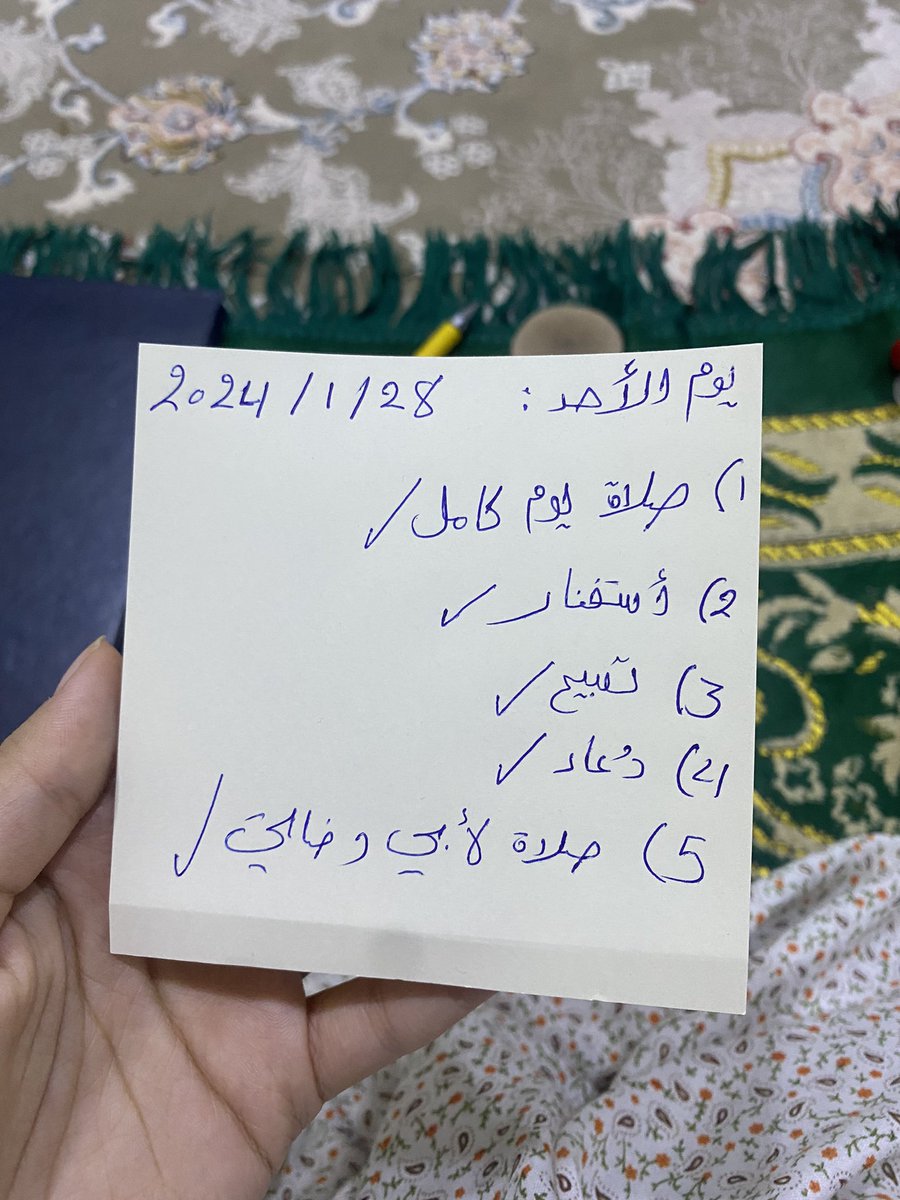 يوم الأحد : 2024/1/28
1) صلاة يوم كامل ✓
2) أستغفار ✓
3) تسبيح ✓
4) دعاء ✓
5) صلاة لأبي وخالتي ✓